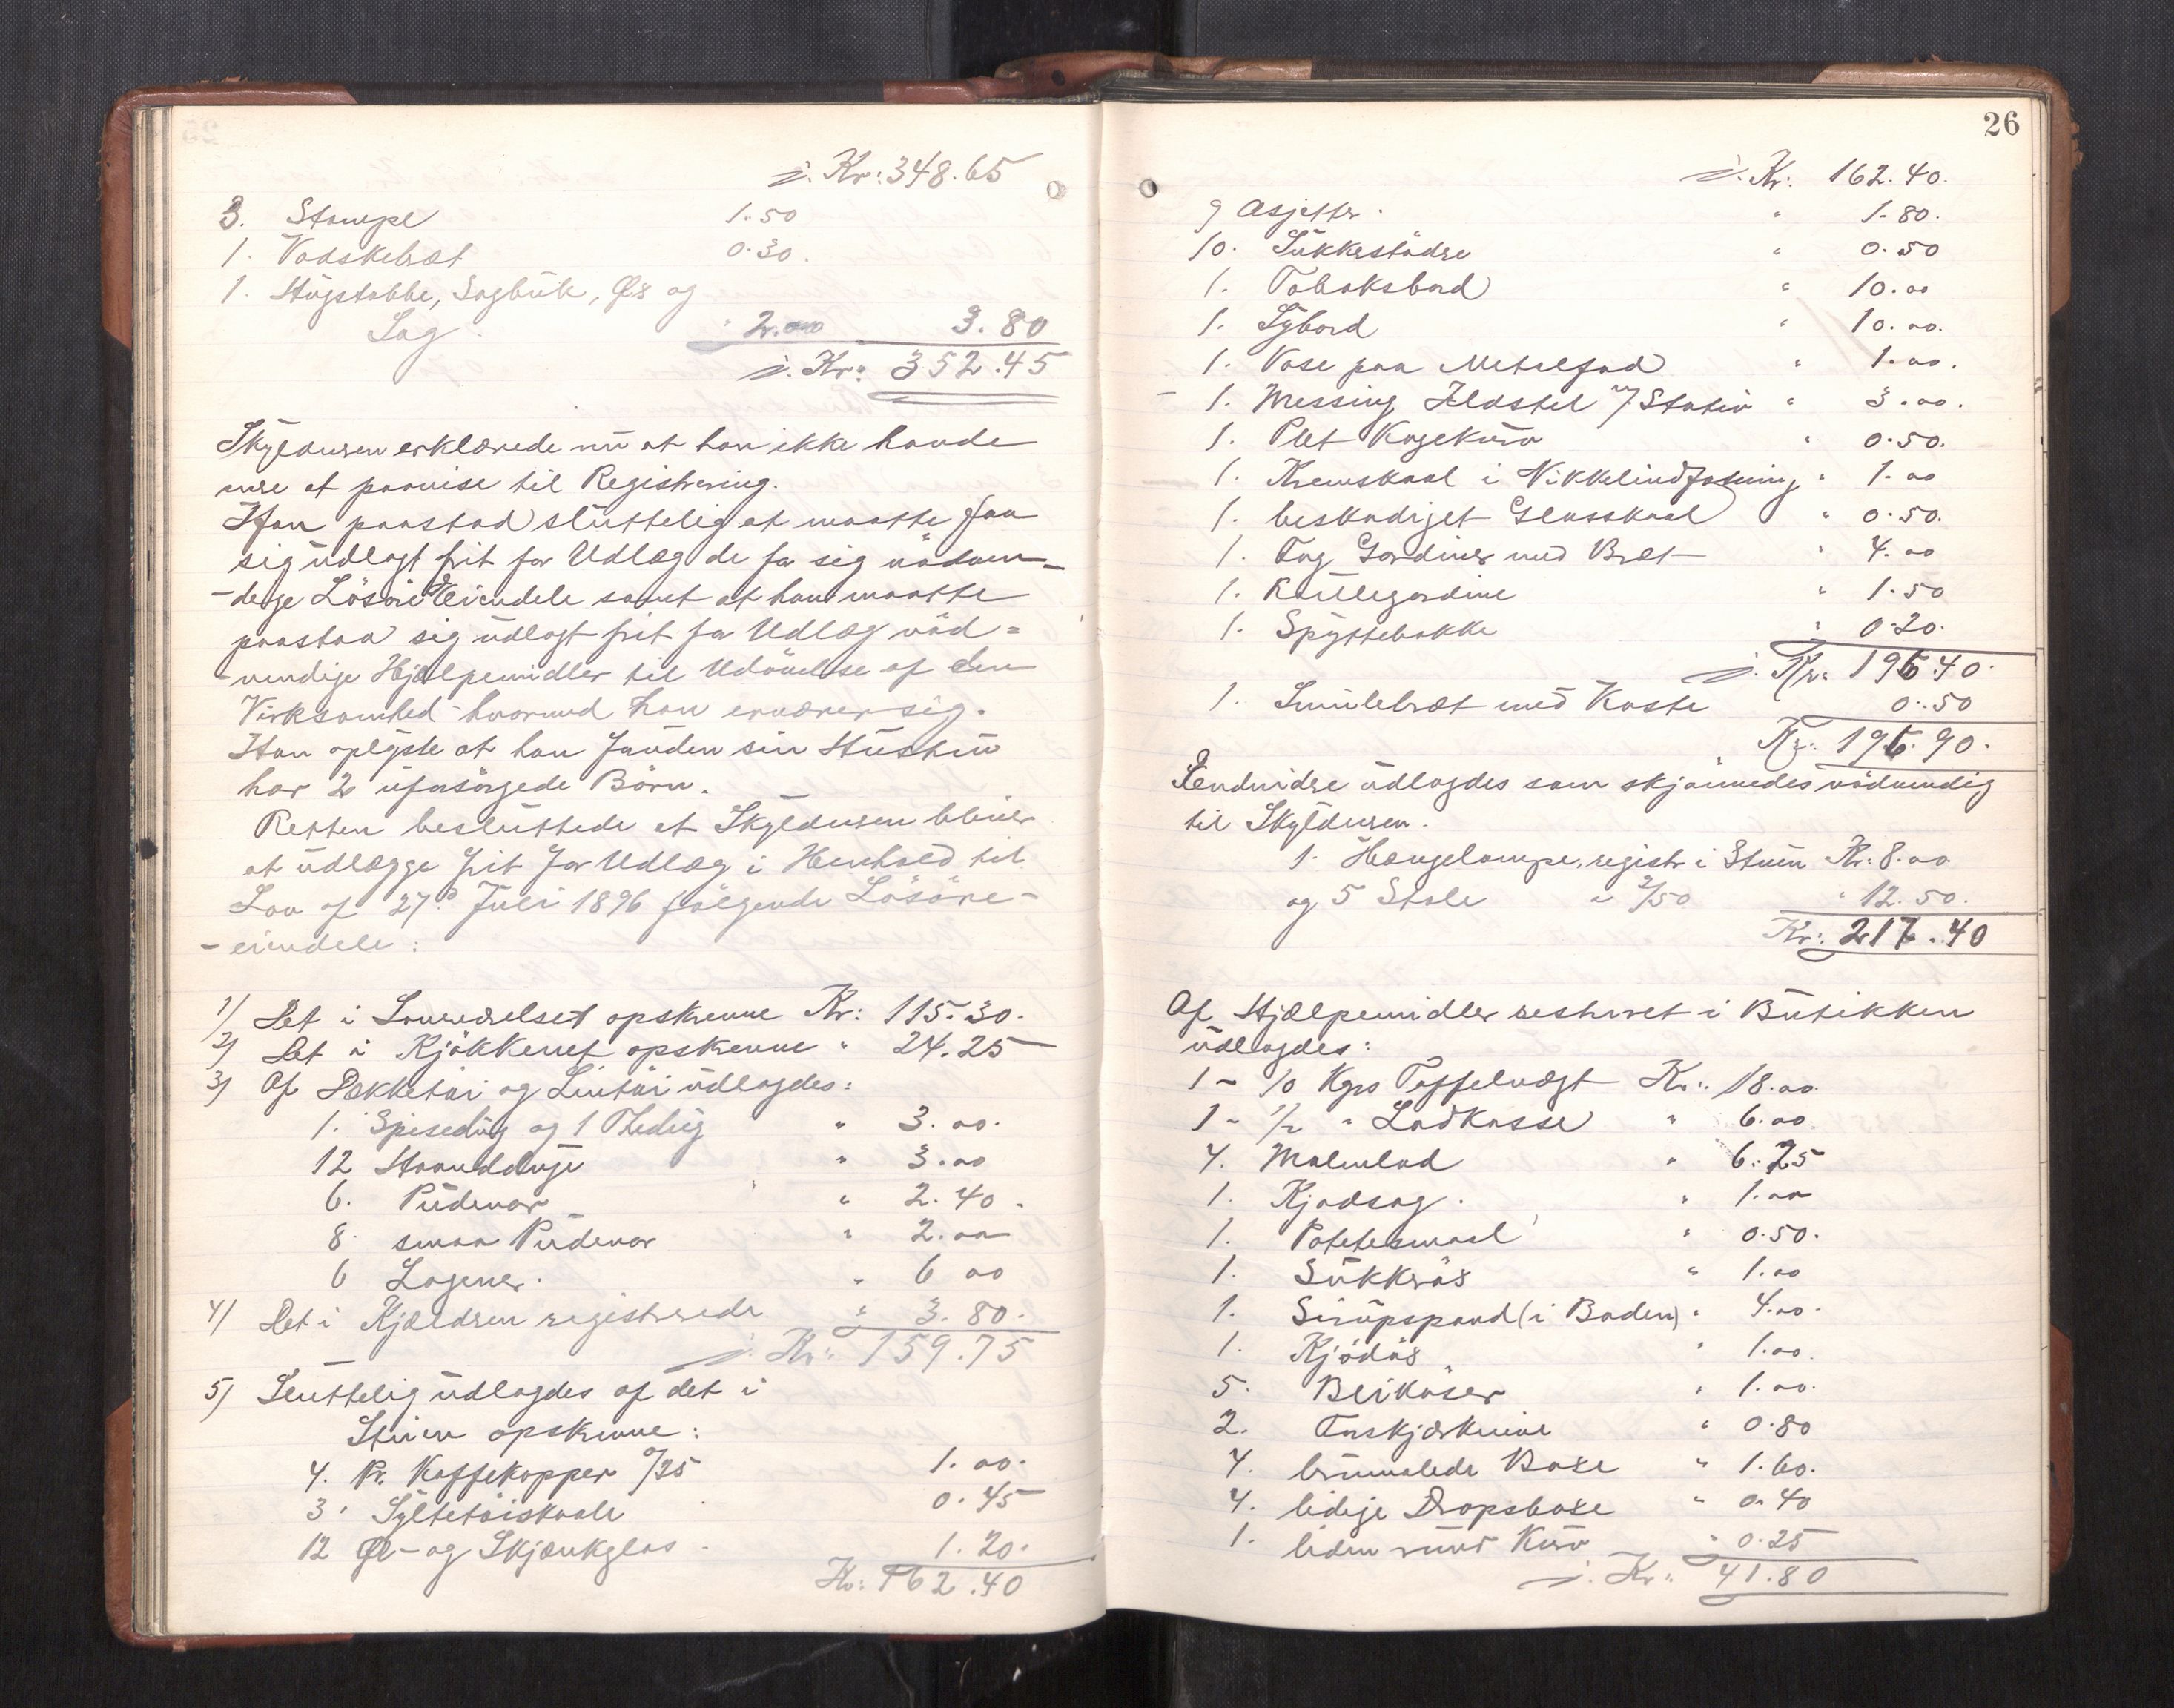 i. Kr: 348.65
3. Stampe 1.50
1. Vadskebræt 0.30.
1. Hugstabbe, Sagbuk, Øs og
Sag " 2.00 3.80
i. Kr: 352.45
Skyldneren erklærede nu at han ikke havde
mere at paavise til Registrering.
Han paastod sluttelig at maatte faa
sig udlagt frit for Udlæg de for sig nödven-
-dige Lösöre Eiendele samt at han maatte
paastaa sig udlagt frit for Udlæg nöd=
-vendige Hjælpemidler til Udövelse af den
Virksomhed hvormed han ernærer sig.
Han oplyste at han foruden sin Hustru
har 2 uforsörgede Börn.
Retten besluttede at Skyldneren bliver
at udlægge frit for Udlæg i Henhold til
Lov af 27de Juli 1896 fölgende Lösöre-
-eiendele:
1) Det i Soveværelset opskrevne Kr: 115.30.
2) Det i Kjökkenet opskrevne " 24.25
3) Af Dækketöi og Lintöi udlagdes:
1. Spisedug og 1 Thedug " 3.00.
12 Haandduge " 3.00
6. Pudevar " 2.40.
8. smaa Pudevar " 2.00
6 Lagener. " 6 00
4) Det i Kjælderen registrerede " 3.80.
i. Kr: 159.75
5) Sluttelig udlagdes af det i
Stuen opskrevne:
4. Pr. Kaffekopper a/25 1.00.
3. Syltetöiskaale 0.45
12 Øl- og Skjænkglas. 1.20.
Kr: 162.40
26
i. Kr: 162.40.
9 Asjetter. " 1.80.
10. Dukkestadse " 0.50
1. Tobaksbord " 10.00
1. Sybord " 10.00.
1. Vase paa Metalfad " 1.00.
- 1. Messing Ildstel m/ Stativ " 3.00.
1. Plet Kagekurv " 0.50.
1. Kremskaal i Nikkelindfatning " 1.00
1. beskadiget Glasskaal " 0.50.
1. Fag Gardiner med Bræt " 4.00
1. Rullegardine " 1.50
1. Spyttebakke " 0.20.
i. Kr: 196.40.
1. Smulebræt med Koste 0.50
Kr: 196.90.
Endvidere udlagdes som skjönnedes nödvendig
til Skyldneren.
1. Hængelampe, registr i Stuen Kr: 8.00
og 5 Stole a 2/50 " 12.50.
Kr: 217.40
Af Hjælpemidler beskrevet i Butikken
udlagdes:
1 - 10 Kgrs Taffelvægt Kr: 18.00.
1 - 1/2 " Lodkasse " 6.00.
4. Malmlod " 6.25
1. Kjödsag. " 1.00
1. Potetesmaal " 0.50.
1. Sukkerös " 1.00
1. Sirupspand (i Boden) " 4.00.
1. Kjödöx " 1.00.
5. Blikdaser " 1.00.
2. Forskjærknive " 0.80
4. brunmalede Boxe " 1.60.
4. ledige Dropsboxe " 0.40
1. liden rund Kurv " 0.25
i. Kr: 41.80